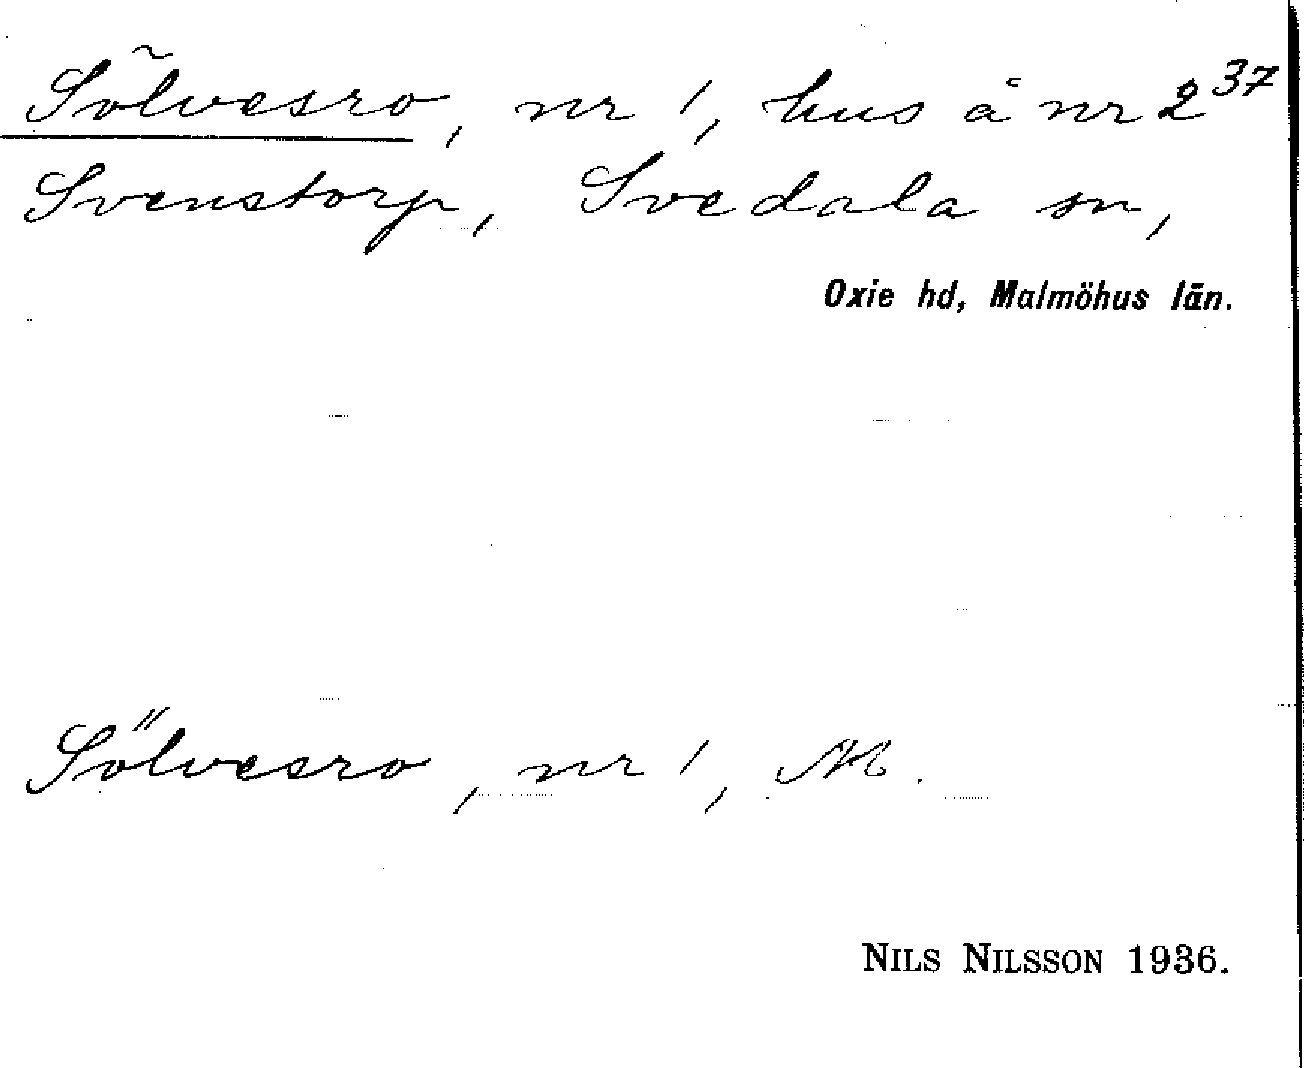 Sölvesro, nr 1, hus å nr 2³⁷
Svenstorp, Svedala sn,
Oxie hd, Malmöhus län.
Sölvesro, nr 1, M.
NILS NILSSON 1936.